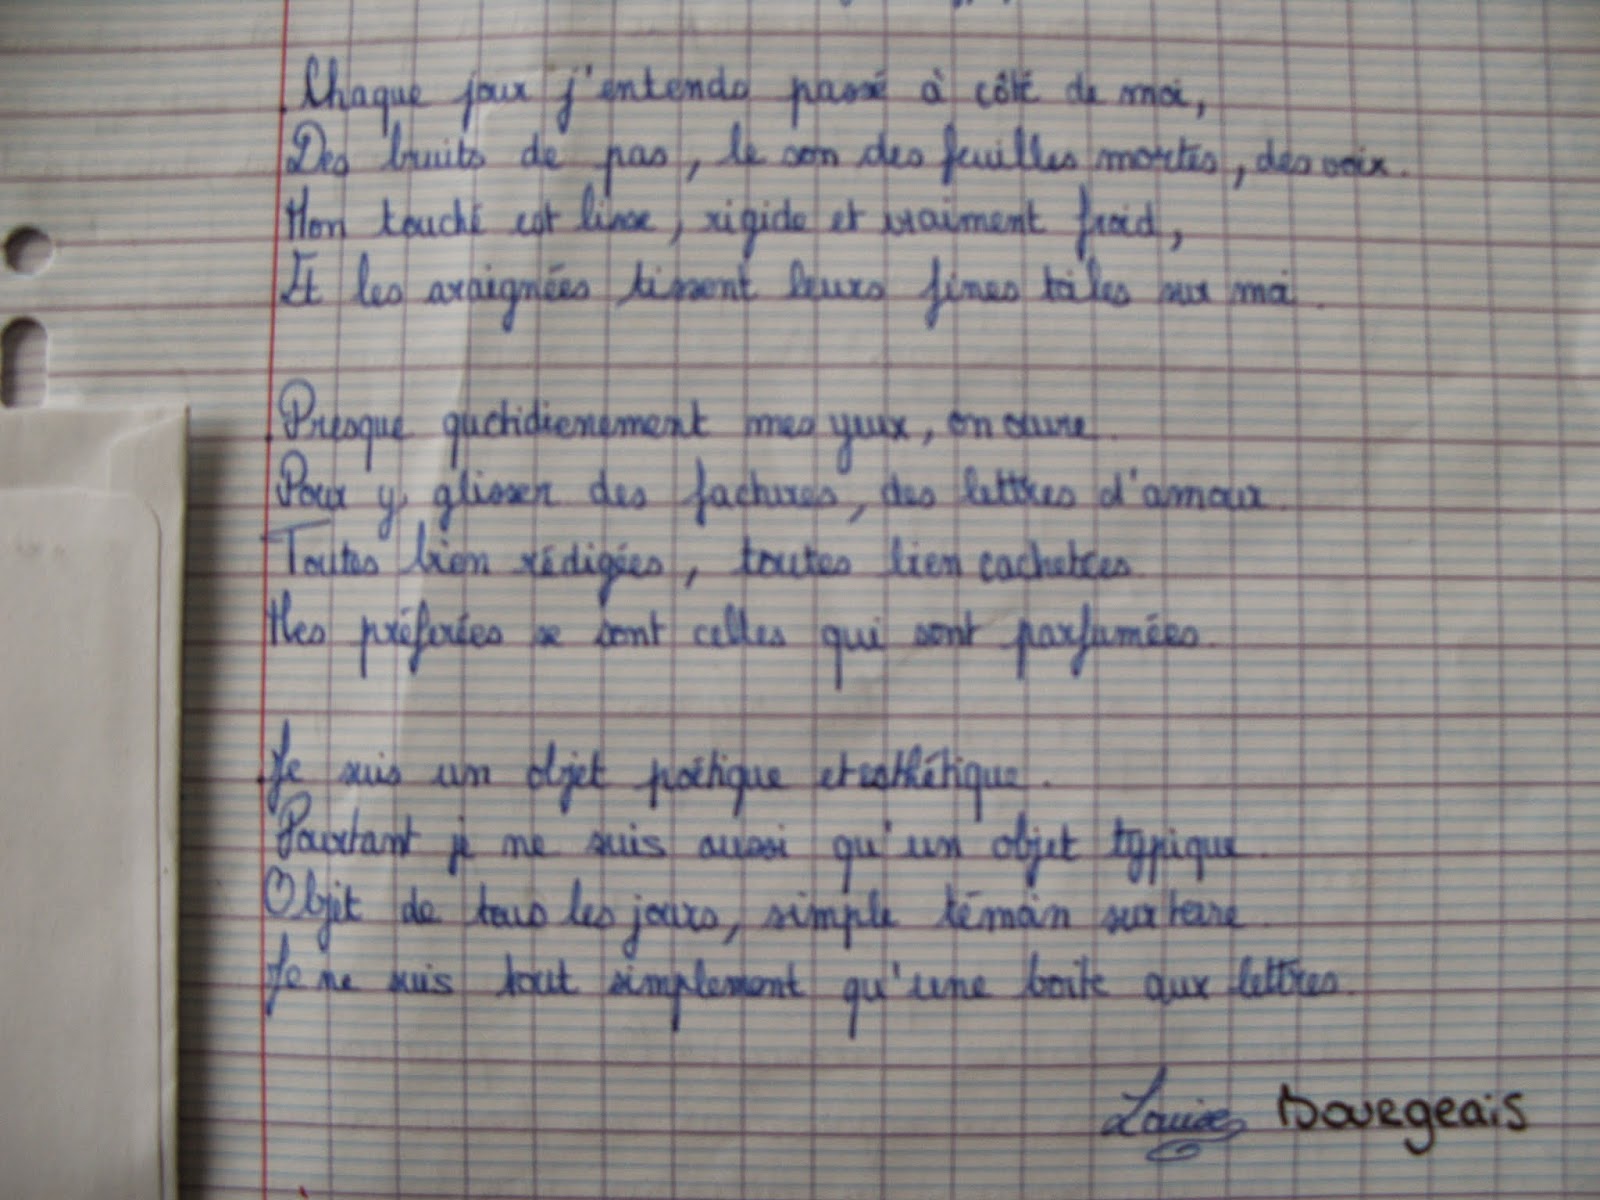 Chaque jour j'entends passé à côté de moi,
Des bruits de pas, le son des feuilles mortes, des voix.
Mon touché est lisse, rigide et vraiment froid,
Et les araignées tissent leurs fines toiles sur moi.
Presque quotidienement mes yeux, on ouvre
Pour y glisser des factures, des lettres d'amour.
Toutes bien rédigées, toutes bien cachetées
Mes préferées se sont celles qui sont parfumées.
Je suis un objet poétique et esthétique.
Pourtant je ne suis aussi qu'un objet typique.
Objet de tous les jours, simple témoin sur terre
Je ne suis tout simplement qu'une boîte aux lettres.
Louise Bourgeais